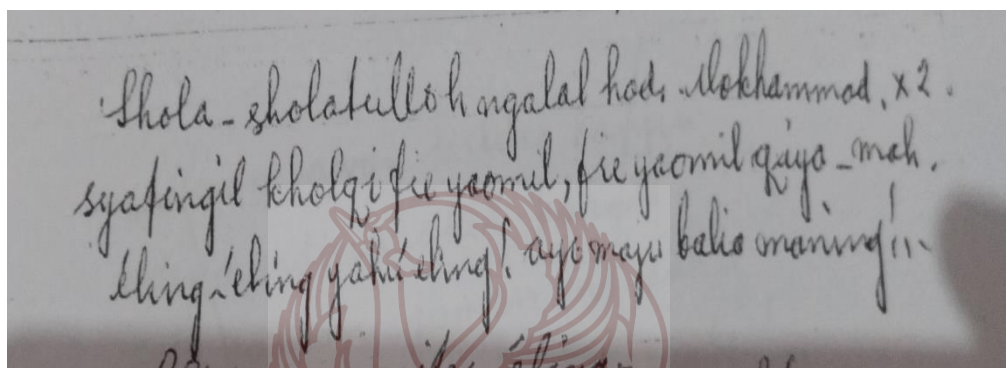 Shola-sholatulloh ngalal hadi Mokhammad, x2.
syafingil kholqi fie yaomil, fie yaomil qiyo-mah.
éling-éling yahu éling! ayo maju balio maning!!..
éling